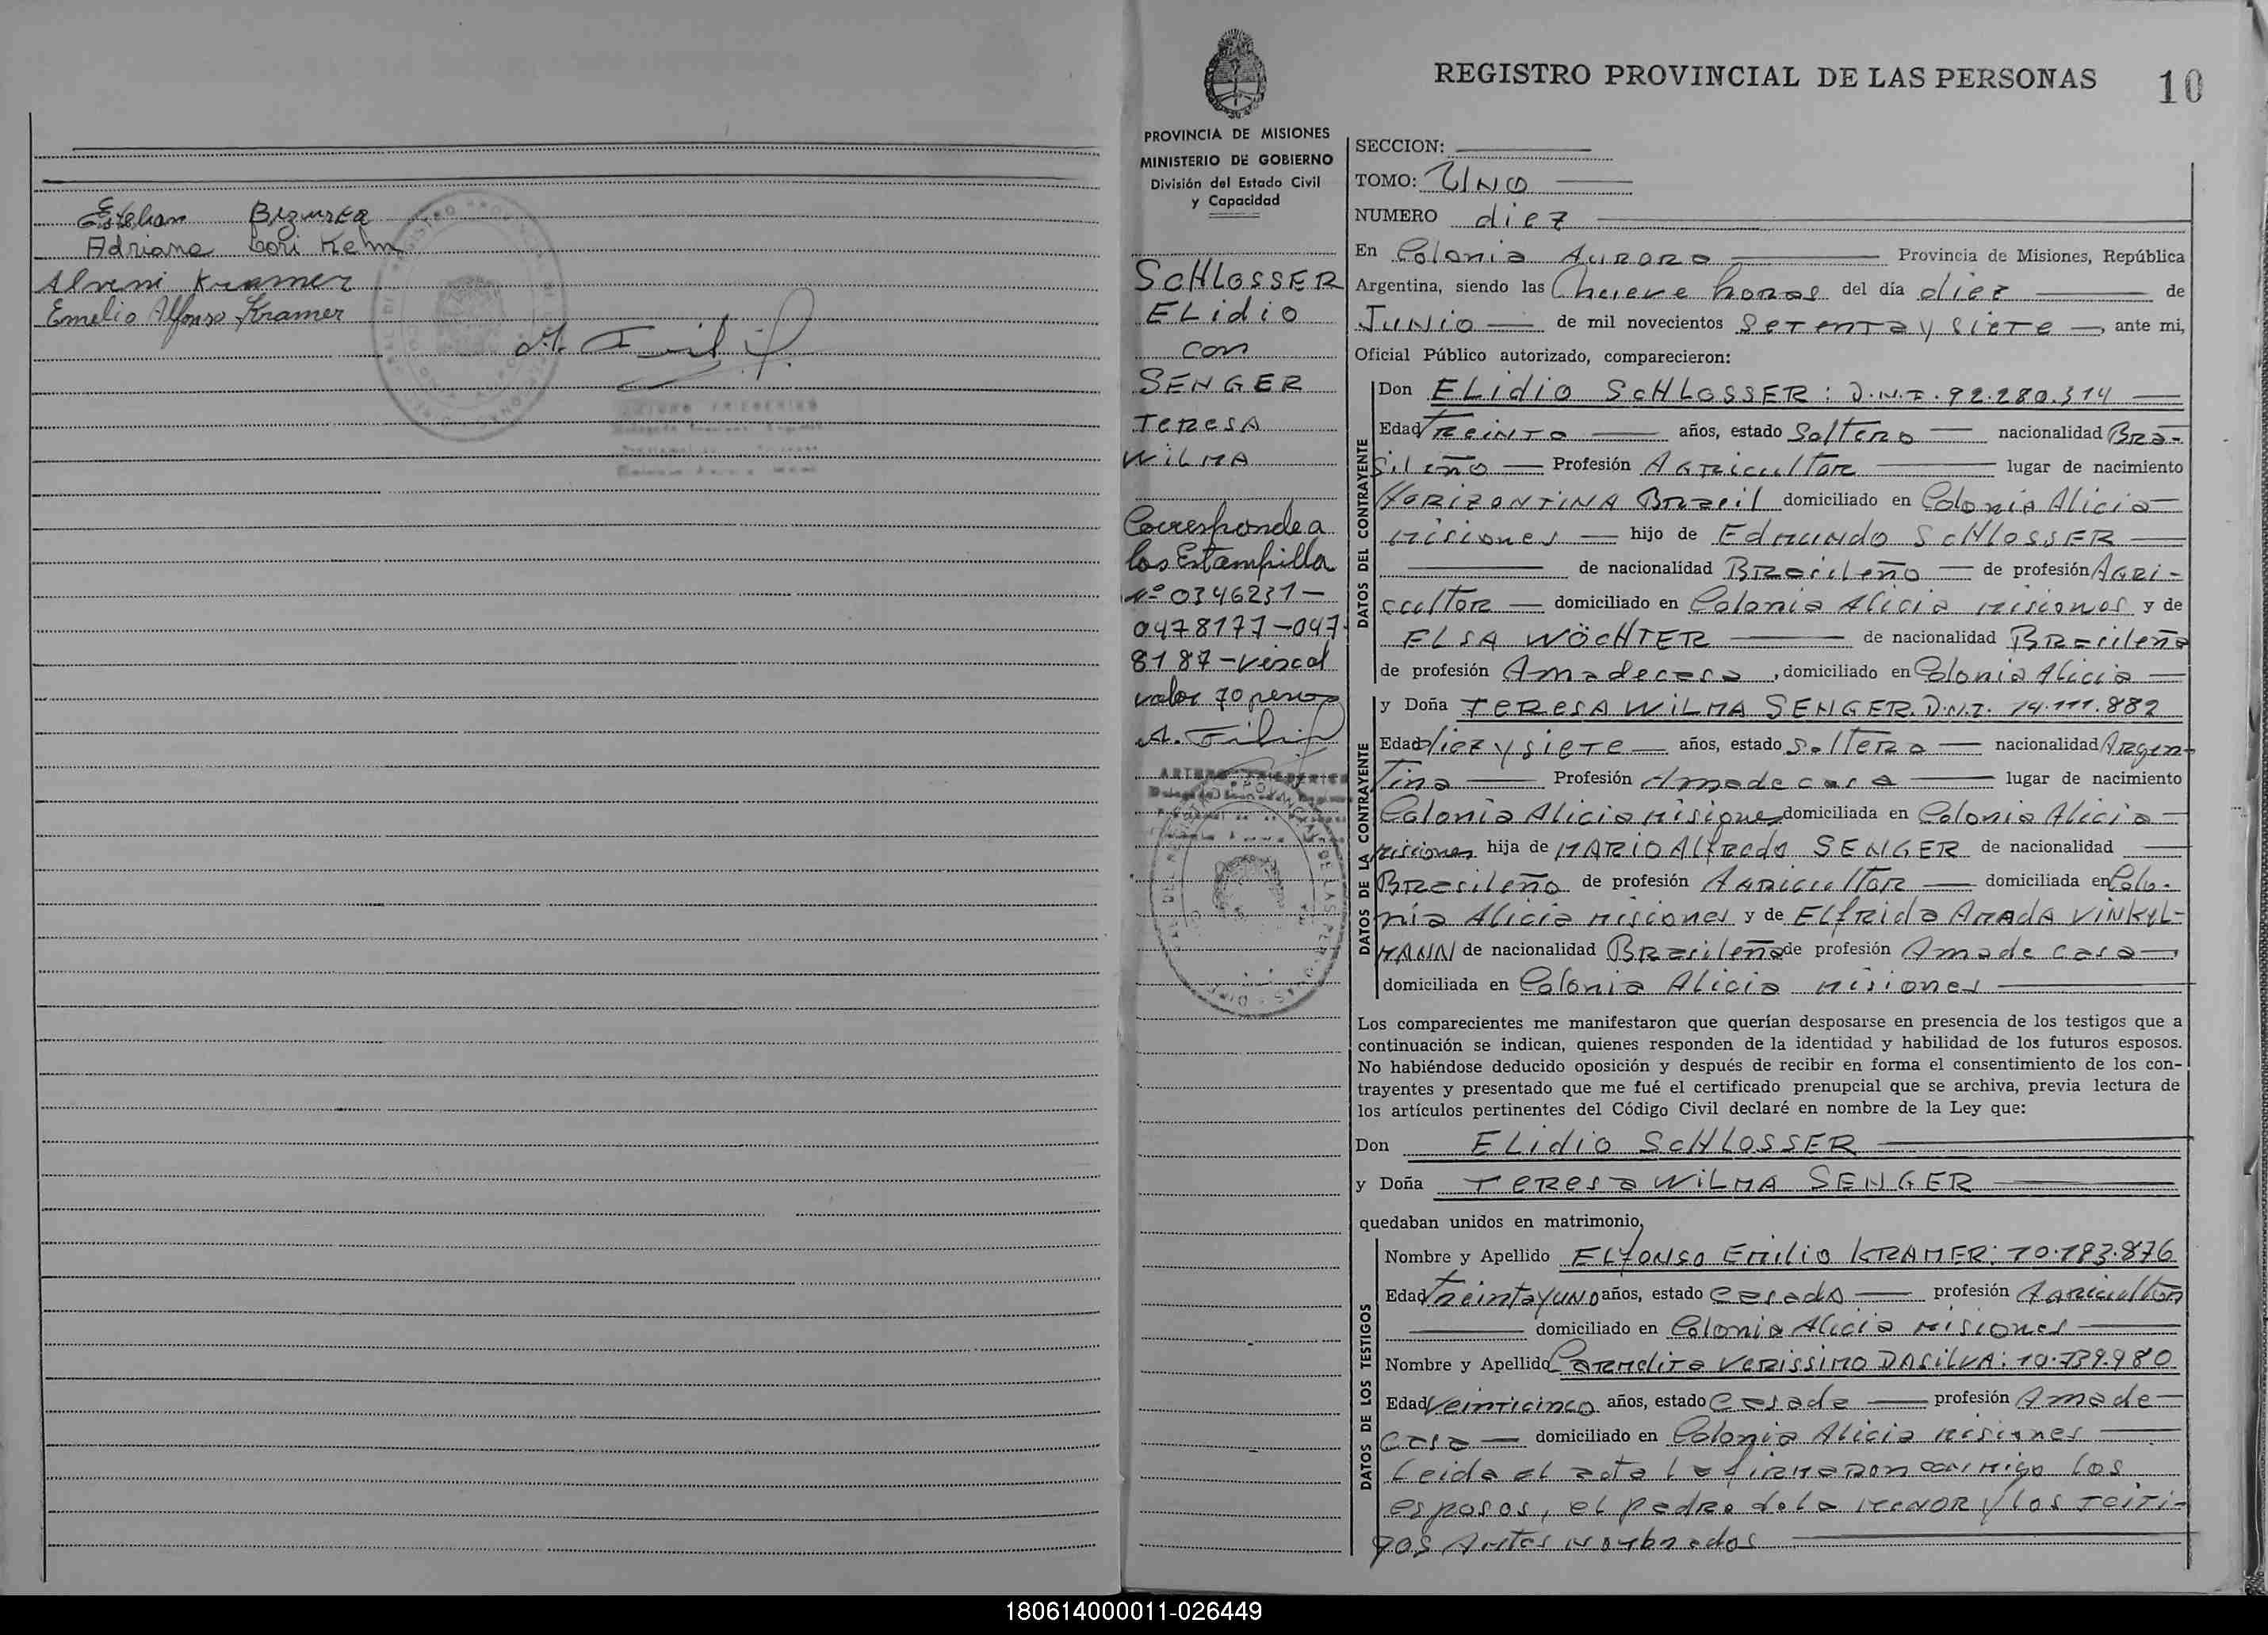 Esteban Bzuska
Adriana Lori Kelm
Alveni Kramer
Emelio Alfonso Kramer
PROVINCIA DE MISIONES
MINISTERIO DE GOBIERNO
División del Estado Civil
y Capacidad
SCHLOSSER
ELidio
con
SENGER
TERESA
WILMA
Corresponde a
las Estampilla
Nº 0346231-
0478177-047
8187-
valor 70 pesos
REGISTRO PROVINCIAL DE LAS PERSONAS 10
SECCION:
TOMO: UNICO
NUMERO diez
En Colonia AURORA Provincia de Misiones, República
Argentina, siendo las nueve horas del día diez de
Junio de mil novecientos setenta y siete, ante mi,
Oficial Público autorizado, comparecieron:
DATOS DEL CONTRAYENTE
Don ELidio SCHLOSSER: D.N.I. 92.280.314
Edad Treinta años, estado Soltero nacionalidad Bra-
sileño Profesión Agricultor lugar de nacimiento
HORIZONTINA Brasil domiciliado en Colonia Alicia
Misiones hijo de Edmundo SCHLOSSER
de nacionalidad Brasileño de profesión Agri-
cultor domiciliado en Colonia Alicia Misiones y de
ELSA WÖCHTER de nacionalidad Brasileña
de profesión Ama de casa, domiciliado en Colonia Alicia
DATOS DE LA CONTRAYENTE
y Doña TERESA WILMA SENGER. D.N.I. 14.111.882
Edad Diez y siete años, estado Soltera nacionalidad Argen-
tina Profesión Ama de casa lugar de nacimiento
Colonia Alicia Misiones domiciliada en Colonia Alicia
Misiones hija de MARIO Alfredo SENGER de nacionalidad
Brasileño de profesión Agricultor domiciliada en Colo-
nia Alicia Misiones y de Elfrida Amada VINKYL-
MANN de nacionalidad Brasileña de profesión Ama de casa
domiciliada en Colonia Alicia Misiones
Los comparecientes me manifestaron que querían desposarse en presencia de los testigos que a
continuación se indican, quienes responden de la identidad y habilidad de los futuros esposos.
No habiéndose deducido oposición y después de recibir en forma el consentimiento de los con-
trayentes y presentado que me fué el certificado prenupcial que se archiva, previa lectura de
los artículos pertinentes del Código Civil declaré en nombre de la Ley que:
Don ELidio SCHLOSSER
y Doña TERESA WILMA SENGER
quedaban unidos en matrimonio,
DATOS DE LOS TESTIGOS
Nombre y Apellido ELFONSO Emilio KRAMER: 10.183.876
Edad Treinta y uno años, estado Casado profesión Agricultor
domiciliado en Colonia Alicia Misiones
Nombre y Apellido Carmelita VERISSIMO DASILVA: 10.739.980
Edad Veinticinco años, estado Casada profesión Ama de
casa domiciliado en Colonia Alicia Misiones
Leida el acta la firmaron conmigo los
esposos, el padre de la menor y los testi-
gos Antes nombrados
180614000011-026449